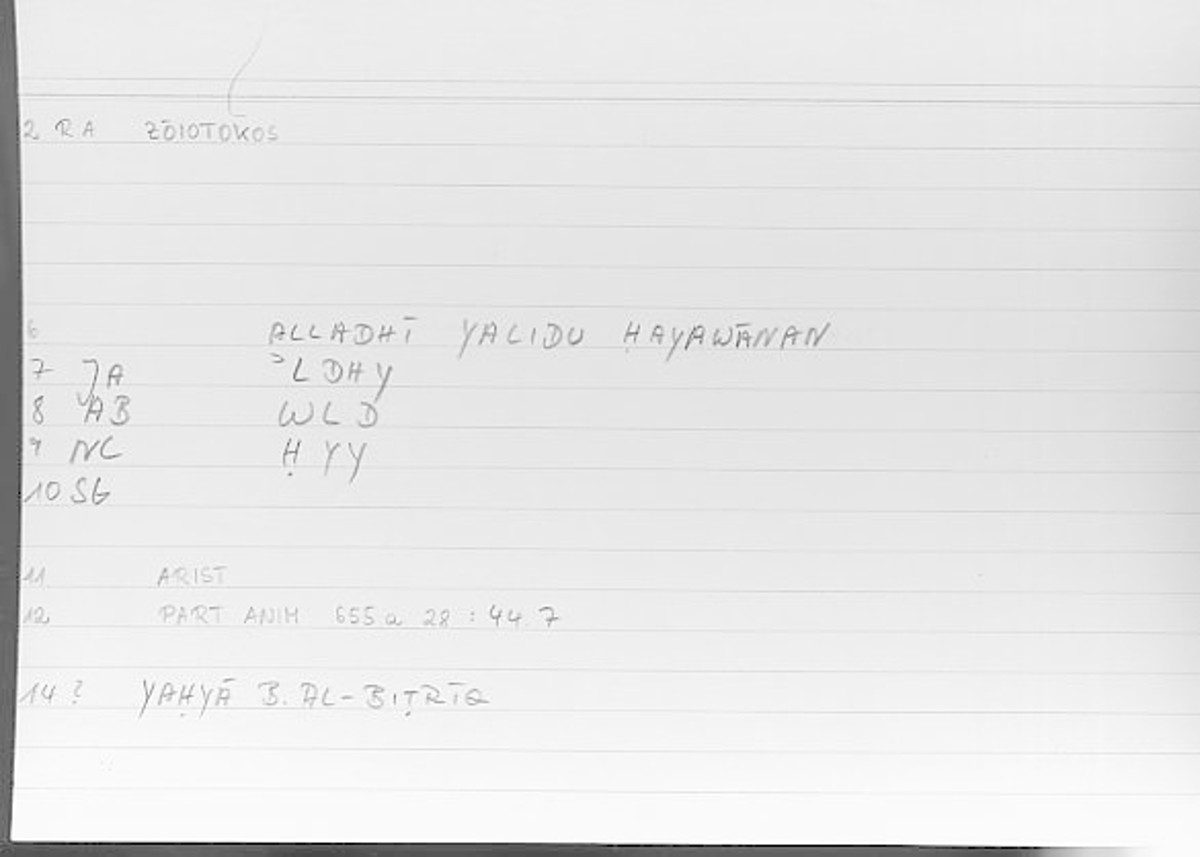 2 RA ZŌIOTOKOS
6 ALLADHĪ YALIDU ḤAYAWĀNAN
7 JA ʾLDHY
8 AB WLD
9 NC ḤYY
10 SG
11 ARIST
12 PART ANIM 655a 28 : 44.7
14 ? YAḤYĀ B. AL-BIṬRĪQ